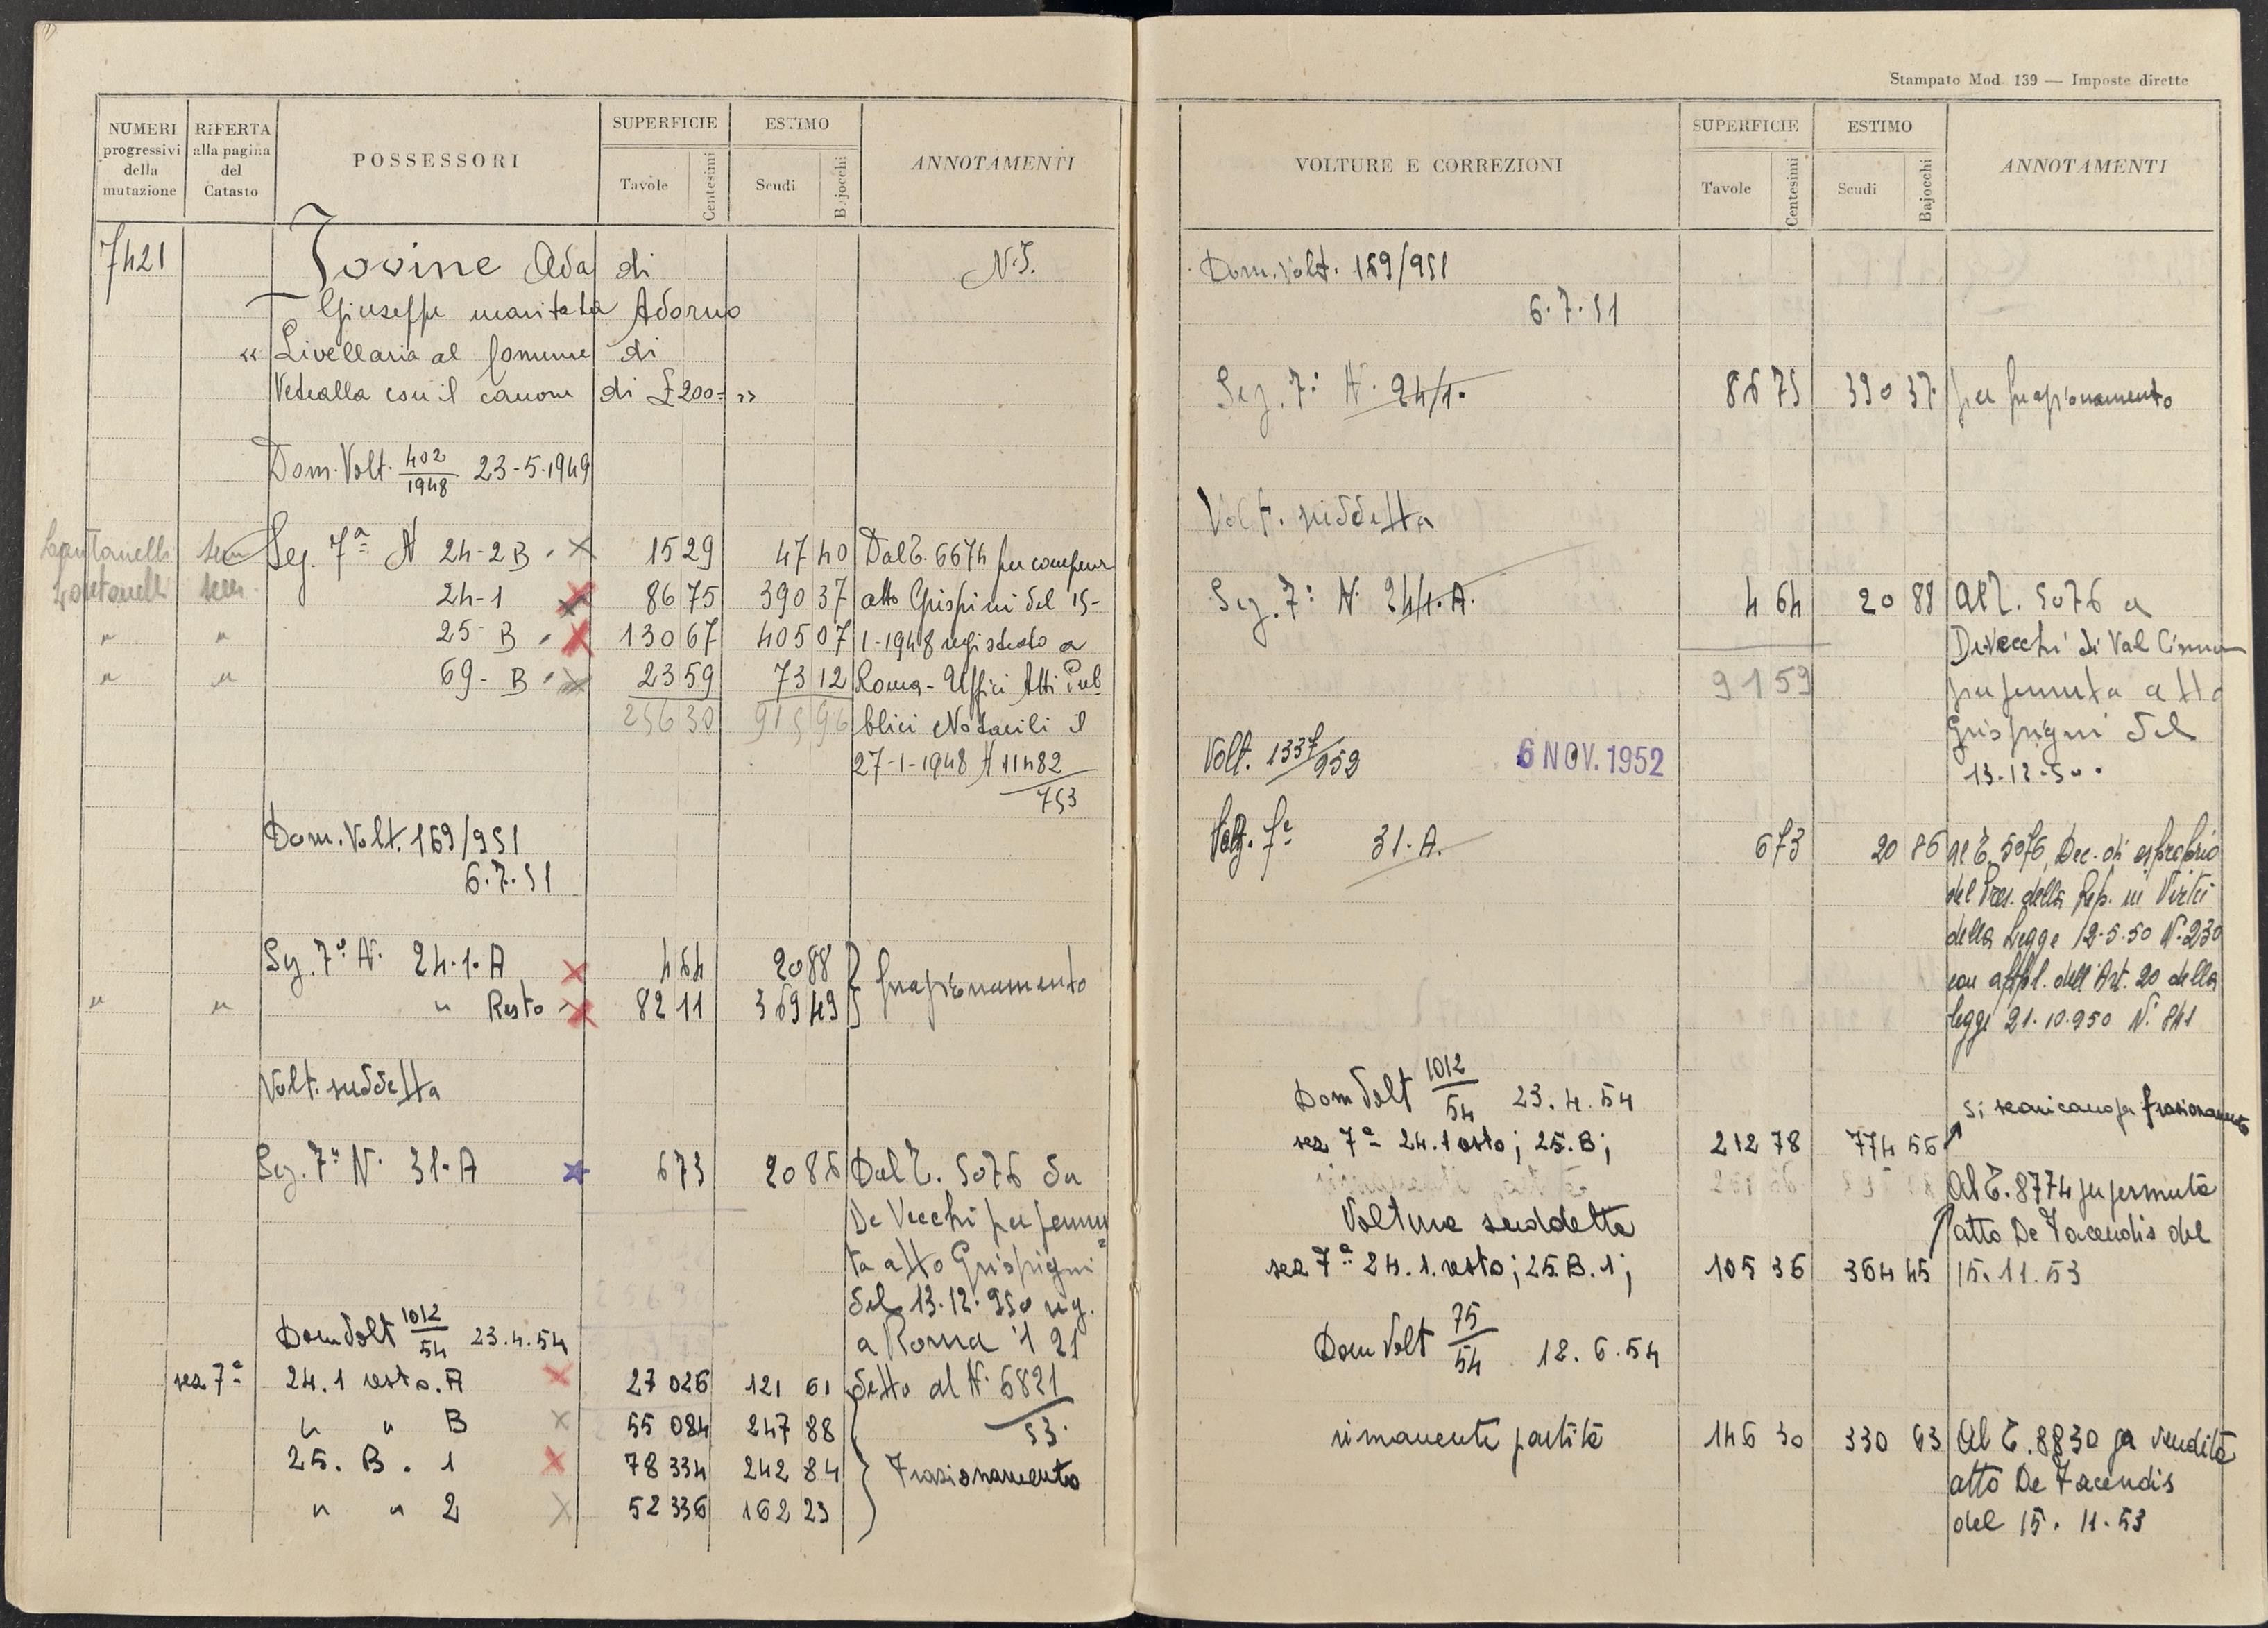 NUMERI progressivi della mutazione
RIFERTA alla pagina del Catasto
POSSESSORI
SUPERFICIE
Tavole
Centesimi
ESTIMO
Scudi
Bajocchi
ANNOTAMENTI
7421
Jovine Ada di
N.I.
Giuseppe maritata Adorno
« Livellaria al Comune di
Vetralla con il canone di £ 200= »
Dom. Volt. 402/1948 23-5-1949
sem Sez. 7ª N 24-2B 15 29 47 40 Dal T. 6674 per compera
sem 24-1 86 75 390 37 atto Grispini del 15-
" " 25 B 130 67 405 07 1-1948 registrato a
" " 69- B 23 59 73 12 Roma- Uffici Atti Pub
256 30 915 96 blici Notarili il
27-1-1948 N 11482/753
Dom. Volt. 169/951
6.7.51
Sez. 7ª N. 24.1.A 4 64 20 88
" " " Resto 82 11 369 49 frazionamento
Volt. suddetta
Sez. 7ª N. 31.A 6 73 20 86 Dal T. 5076 da
De Vecchi per permu
ta atto Grispigni
del 13.12.950 reg.
a Roma il 21
Dom Volt 1012/54 23.4.54
sez 7ª 24.1 resto.A 27 026 121 61 detto al N. 6821/53.
" " B 55 084 247 88
25. B. 1 78 334 242 84 Frazionamento
" " 2 52 336 162 23
Stampato Mod. 139 — Imposte dirette
VOLTURE E CORREZIONI
SUPERFICIE
Tavole
Centesimi
ESTIMO
Scudi
Bajocchi
ANNOTAMENTI
Dom. Volt. 169/951
6.7.51
Sez. 7ª N. 24/1. 86 75 390 37 per frazionamento
Volt. suddetta
Sez. 7ª N. 24/1.A. 4 64 20 88 Al T. 5076 a
De Vecchi di Val Cismon
91 59 per permuta atto
Grispigni del
13.12.50.
Volt. 1337/952 6 NOV. 1952
Sez. 7ª 31.A. 6 73 20 86 al T. 5076, Dec. di esproprio
del Pres. della Rep. in Virtù
della Legge 12.5.50 N. 230
con appl. dell'Art. 20 della
legge 21.10.950 N. 841
Dom Volt 1012/54 23.4.54
si scaricano per frazionamento
sez 7ª 24.1 resto; 25.B; 212 78 774 56
Al T. 8774 per permuta
Voltura suddetta
atto De Facendis del
sez 7ª 24.1.resto; 25.B.1; 105 36 364 45 15.11.53
Dom Volt 75/54 12.6.54
rimanente partita 146 30 330 63 Al T. 8830 per vendita
atto De Facendis
del 15.11.53